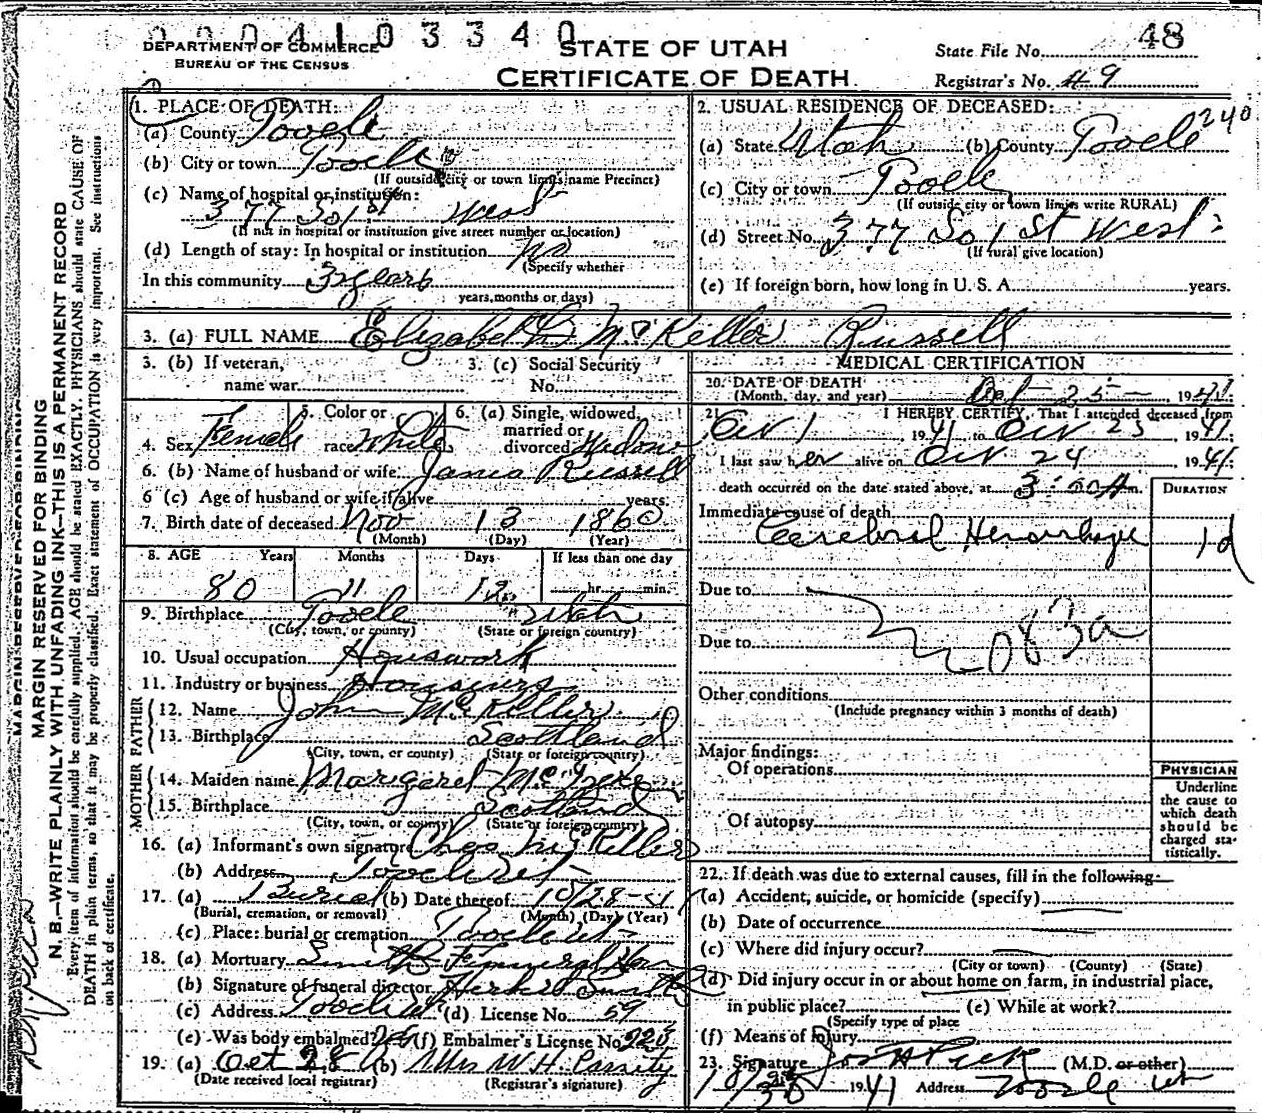 0 0 0 4 1 0 3 3 4 0
48
DEPARTMENT OF COMMERCE
BUREAU OF THE CENSUS
STATE OF UTAH
CERTIFICATE OF DEATH
State File No.
Registrar's No. 49
MARGIN RESERVED FOR BINDING
N. B.—WRITE PLAINLY WITH UNFADING INK—THIS IS A PERMANENT RECORD
Every item of information should be carefully supplied. AGE should be stated EXACTLY. PHYSICIANS should state CAUSE OF
DEATH in plain terms, so that it may be properly classified. Exact statement of OCCUPATION is very important. See instructions
on back of certificate.
1. PLACE OF DEATH:
(a) County Tooele
(b) City or town Tooele
(If outside city or town limits name Precinct)
(c) Name of hospital or institution:
377 So 1st West
(If not in hospital or institution give street number or location)
(d) Length of stay: In hospital or institution no
(Specify whether
In this community 32 years
years, months or days)
2. USUAL RESIDENCE OF DECEASED:
240
(a) State Utah (b) County Tooele
(c) City or town Tooele
(If outside city or town limits write RURAL)
(d) Street No. 377 So 1st West
(If rural give location)
(e) If foreign born, how long in U. S. A. years.
3. (a) FULL NAME Elizabeth McKeller Russell
3. (b) If veteran,
name war
3. (c) Social Security
No.
4. Sex Female
5. Color or
race White
6. (a) Single, widowed,
married or
divorced Widow
6. (b) Name of husband or wife James Russell
6 (c) Age of husband or wife if alive years
7. Birth date of deceased Nov 13 1860
(Month) (Day) (Year)
8. AGE Years Months Days If less than one day
80 11 12 hr. min.
9. Birthplace Tooele Utah
(City, town, or county) (State or foreign country)
10. Usual occupation Housework
11. Industry or business
FATHER
12. Name John McKeller
13. Birthplace Scotland
(City, town, or county) (State or foreign country)
MOTHER
14. Maiden name Margaret
15. Birthplace Scotland
(City, town, or county) (State or foreign country)
16. (a) Informant's own signature Chas McKeller
(b) Address Tooele
17. (a) Burial (b) Date thereof 10/28-41
(Burial, cremation, or removal) (Month) (Day) (Year)
(c) Place: burial or cremation Tooele Ut
18. (a) Mortuary Smith Funeral Home
(b) Signature of funeral director Herbert Smith
(c) Address Tooele Ut (d) License No. 59
(e) Was body embalmed? Yes (f) Embalmer's License No. 223
19. (a) Oct 28 (b) Mrs W. H. Cassity
(Date received local registrar) (Registrar's signature)
MEDICAL CERTIFICATION
20. DATE OF DEATH
(Month, day, and year) Oct 25 1941
21. I HEREBY CERTIFY, That I attended deceased from
Oct 1 1941 to Oct 25 1941
I last saw her alive on Oct 24 1941
death occurred on the date stated above, at 3:50 A m.
DURATION
Immediate cause of death
Cerebral Hemorrhage 1 d
Due to
083a
Due to
Other conditions
(Include pregnancy within 3 months of death)
Major findings:
Of operations
Of autopsy
PHYSICIAN
Underline
the cause to
which death
should be
charged sta-
tistically.
22. If death was due to external causes, fill in the following:
(a) Accident, suicide, or homicide (specify)
(b) Date of occurrence
(c) Where did injury occur?
(City or town) (County) (State)
(d) Did injury occur in or about home on farm, in industrial place,
in public place? (e) While at work?
(Specify type of place
(f) Means of injury
23. Signature Jos H Peck (M.D. or other)
1941 Address Tooele Ut